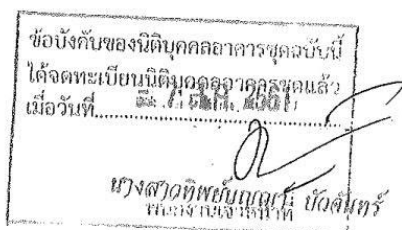 ข้อบังคับของนิติบุคคลอาคารชุดฉบับนี้
ได้จดทะเบียนนิติบุคคลอาคารชุดแล้ว
เมื่อวันที่ 2561
นางสาวทิพย์ บัวจันทร์
พนักงานเจ้าหน้าที่